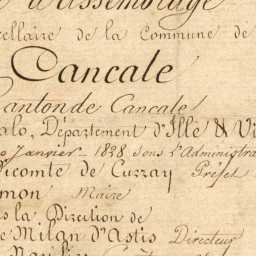 d'assemblage
cellaire de la Commune de
Cancale
anton de Cancale
alo, Département d'Ille & Vi
Janvier 1828 sous l'Administra
icomte de Curzay Préfet
mon Maire
s la Direction de
e Milan d'Astis Directeur